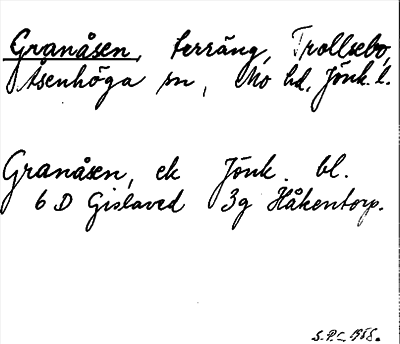 Granåsen, terräng, Trollsebo,
Åsenhöga sn, Mo hd, Jönk. l.
Granåsen, ek Jönk. bl.
6 D Gislaved 3g Håkentorp.